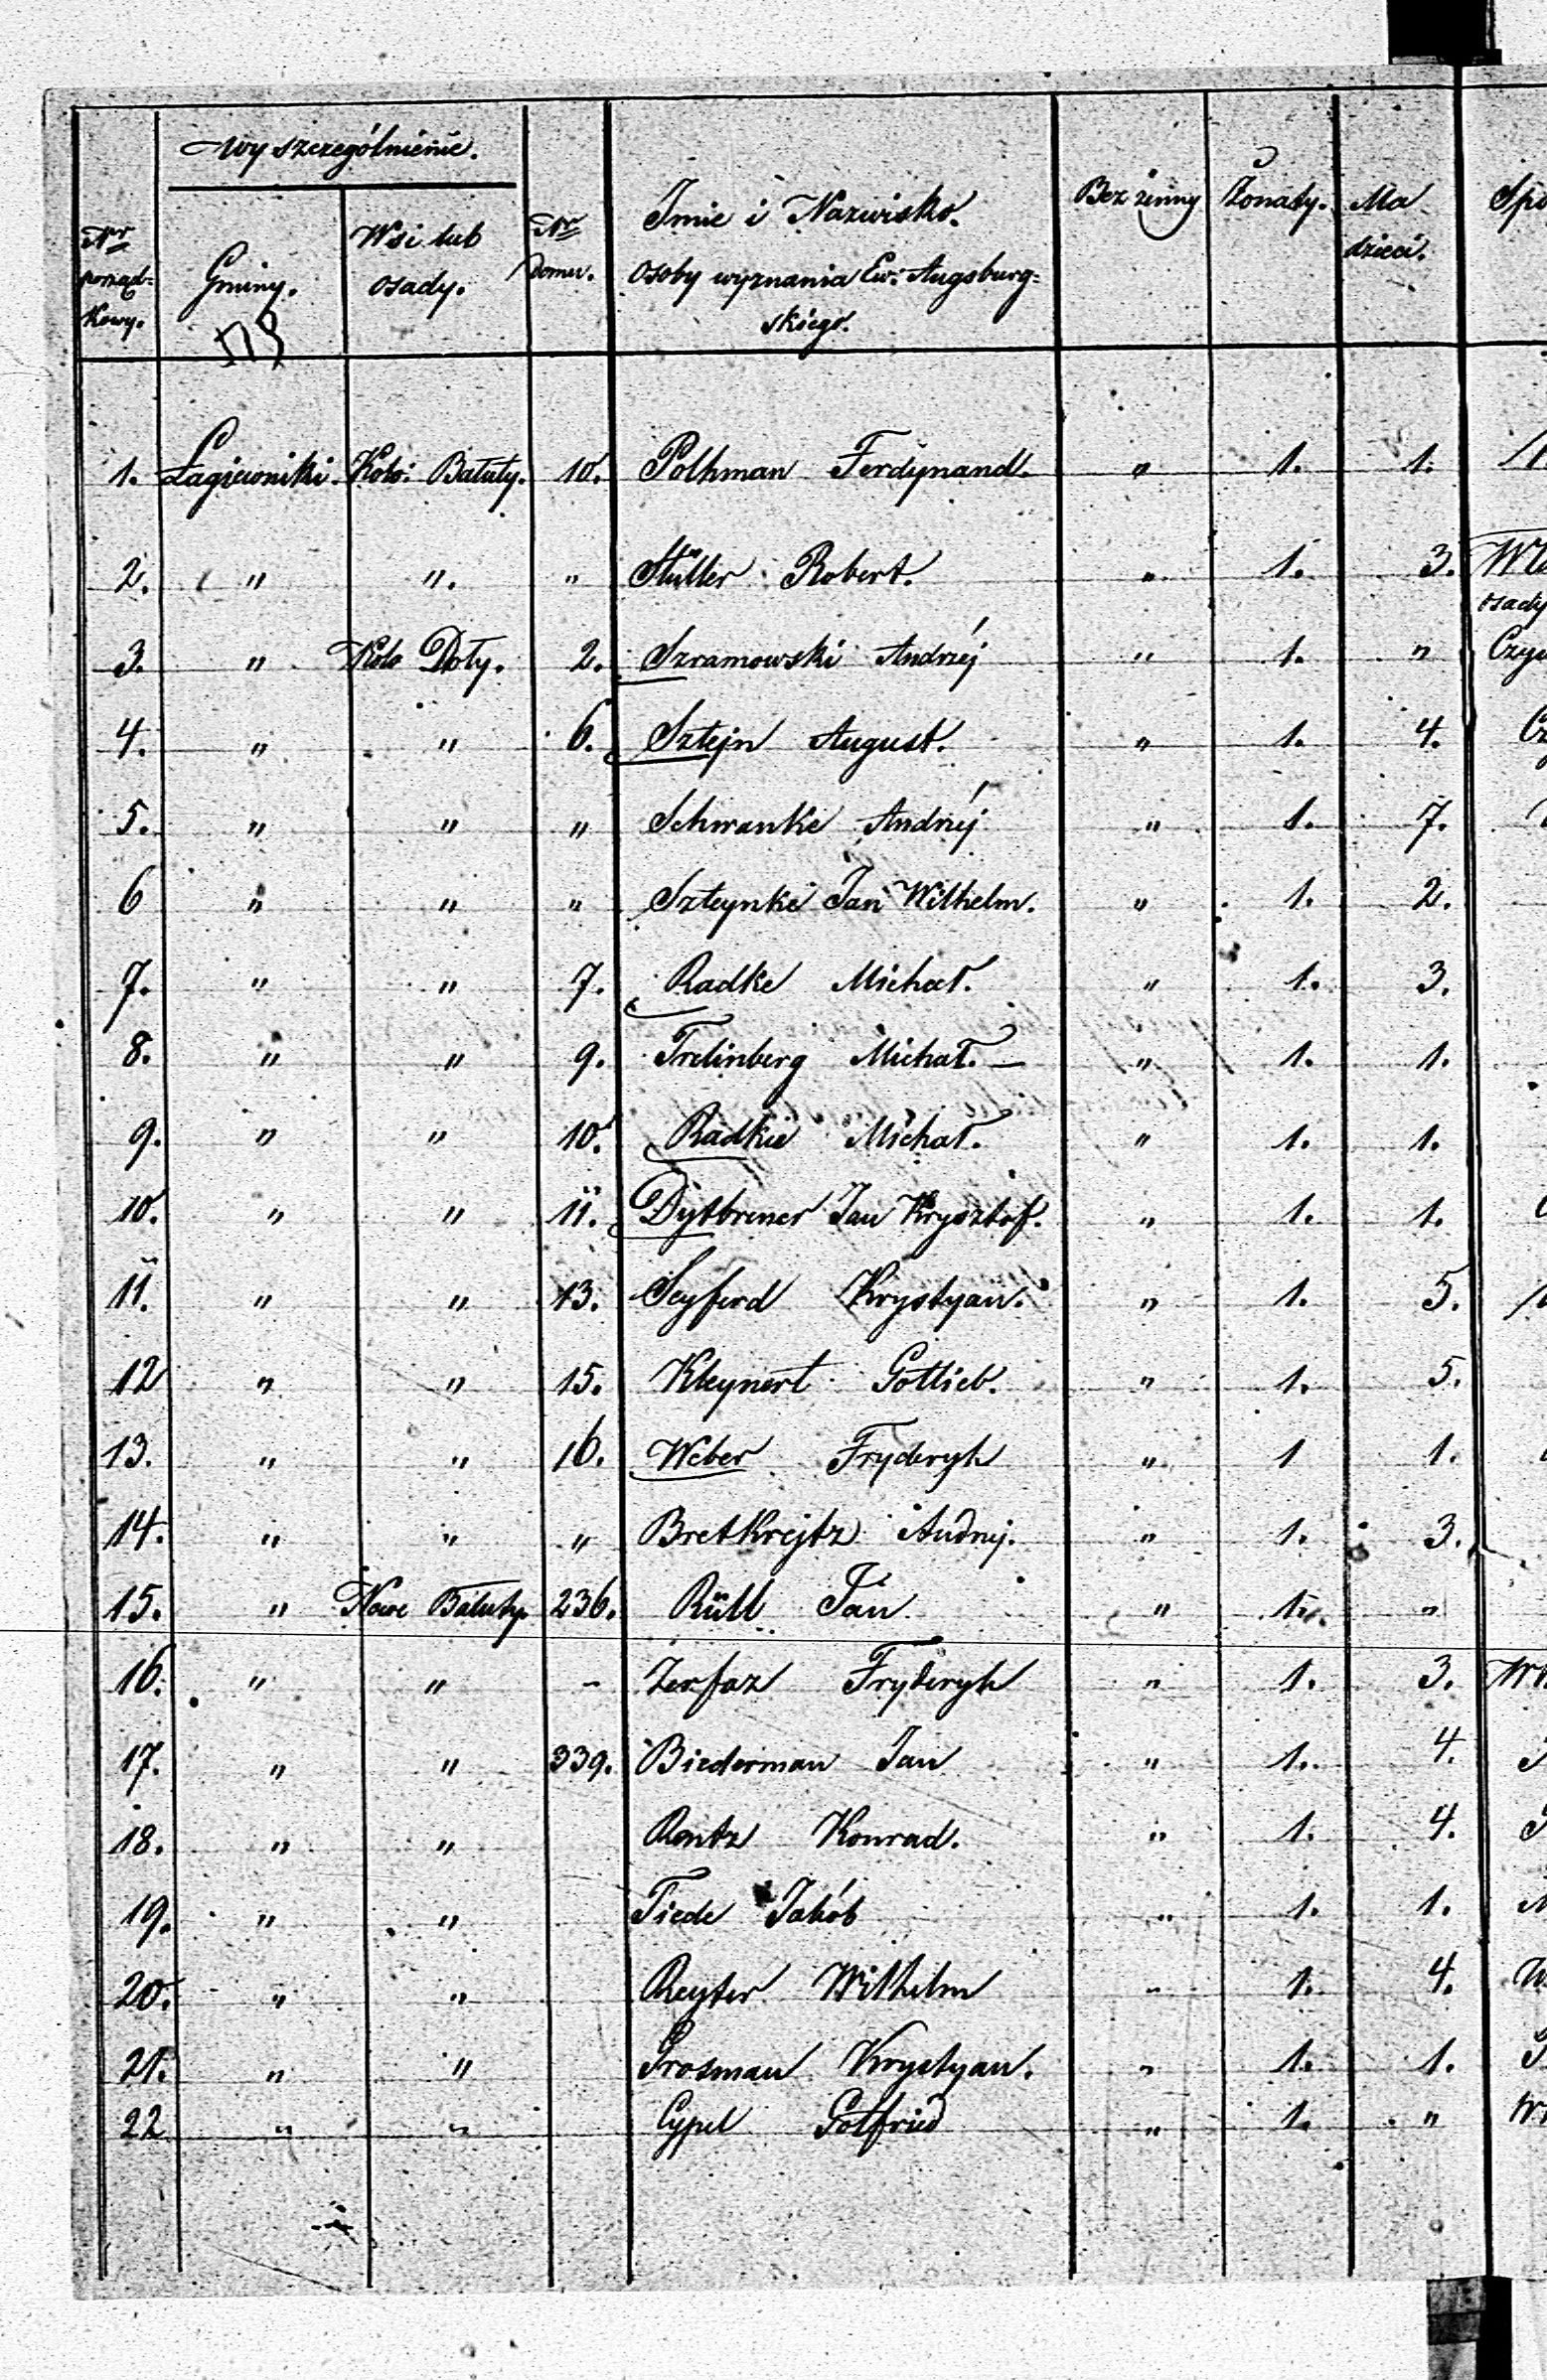 Wyszczególnienie.
Nr porząd-kowy. Gminy. Wsi lub osady. Nr Domu. Imie i Nazwisko. osoby wyznania Ew: Augsburg-skiego. Bezżenny Żonaty. Ma dzieci.
1. Łagiewniki. Kolo: Bałuty. 10. Polhman Ferdynand. " 1. 1.
2. " ". " Müller Robert. " 1. 3.
osady
3. " Kolo Doły. 2. Szramowski Andrzéj " 1. "
4. " " 6. Sztejn August. " 1. 4.
5. " " " Schwanke Andrzéj " 1. 7.
6 " " " Szteynke Jan Wilhelm. " 1. 2.
7. " " 7. Radke Michał. " 1. 3.
8. " " 9. Frelinberg Michał. — " 1. 1.
9. " " 10. Radkie Michał. " 1. 1.
10. " " 11. Dytbrener Jan Krysztof. " 1. 1.
11. " " 13. Seyferd Krystyan. " 1. 5.
12 " " 15. Kleynert Gottlieb. " 1. 5.
13. " " 16. Weber Fryderyk " 1 1.
14. " " " Bretkrejtz Andrzej. " 1. 3.
15. " Nowe Bałuty. 236. Rüll Jan " 1. "
16. " " - Zerfaz Fryderyk " 1. 3.
17. " " 339. Biederman Jan " 1. 4.
18. " " Rentz Konrad. " 1. 4.
19. " " Tiede Jakób " 1. 1.
20. " " Reyter Wilhelm " 1. 4.
21. " " Grosman Krystyan. " 1. 1.
22 " " Cypel Gotfried " 1. "